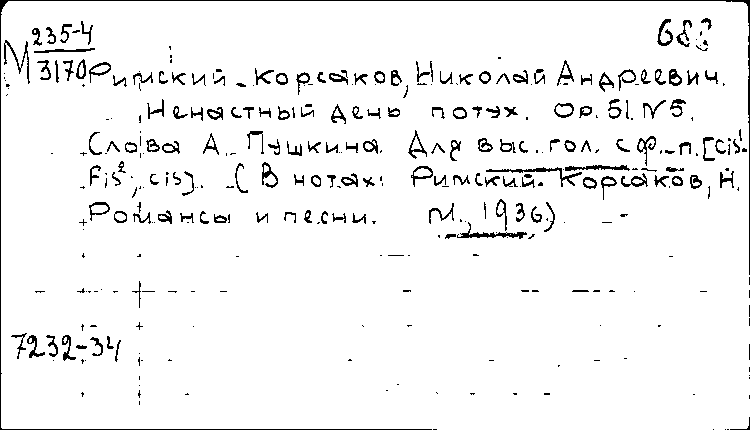 М 235-4
3170
Римский-Корсаков, Николай Андреевич.
Ненастный день потух. Op. 51. N5.
Слова А. Пушкина. Для выс. гол. с ф.-п. [cis¹-
Fis², cis]. (В нотах: Римский-Корсаков, Н.
Романсы и песни. М., 1936.) -
7232-34